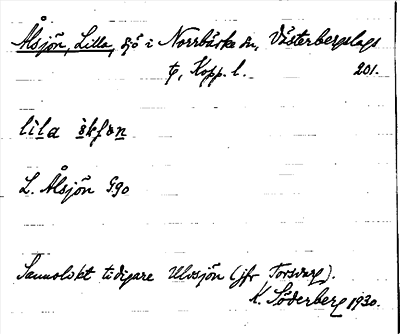 Ålsjön, Lilla, sjö i Norrbärke sn, Västerbergslags
tg, Kopp. l. 201.
lila
L. Ålsjön G90
Sannolikt tidigare Ulvsjön (jfr Torsvarg).
K. Söderberg 1930.